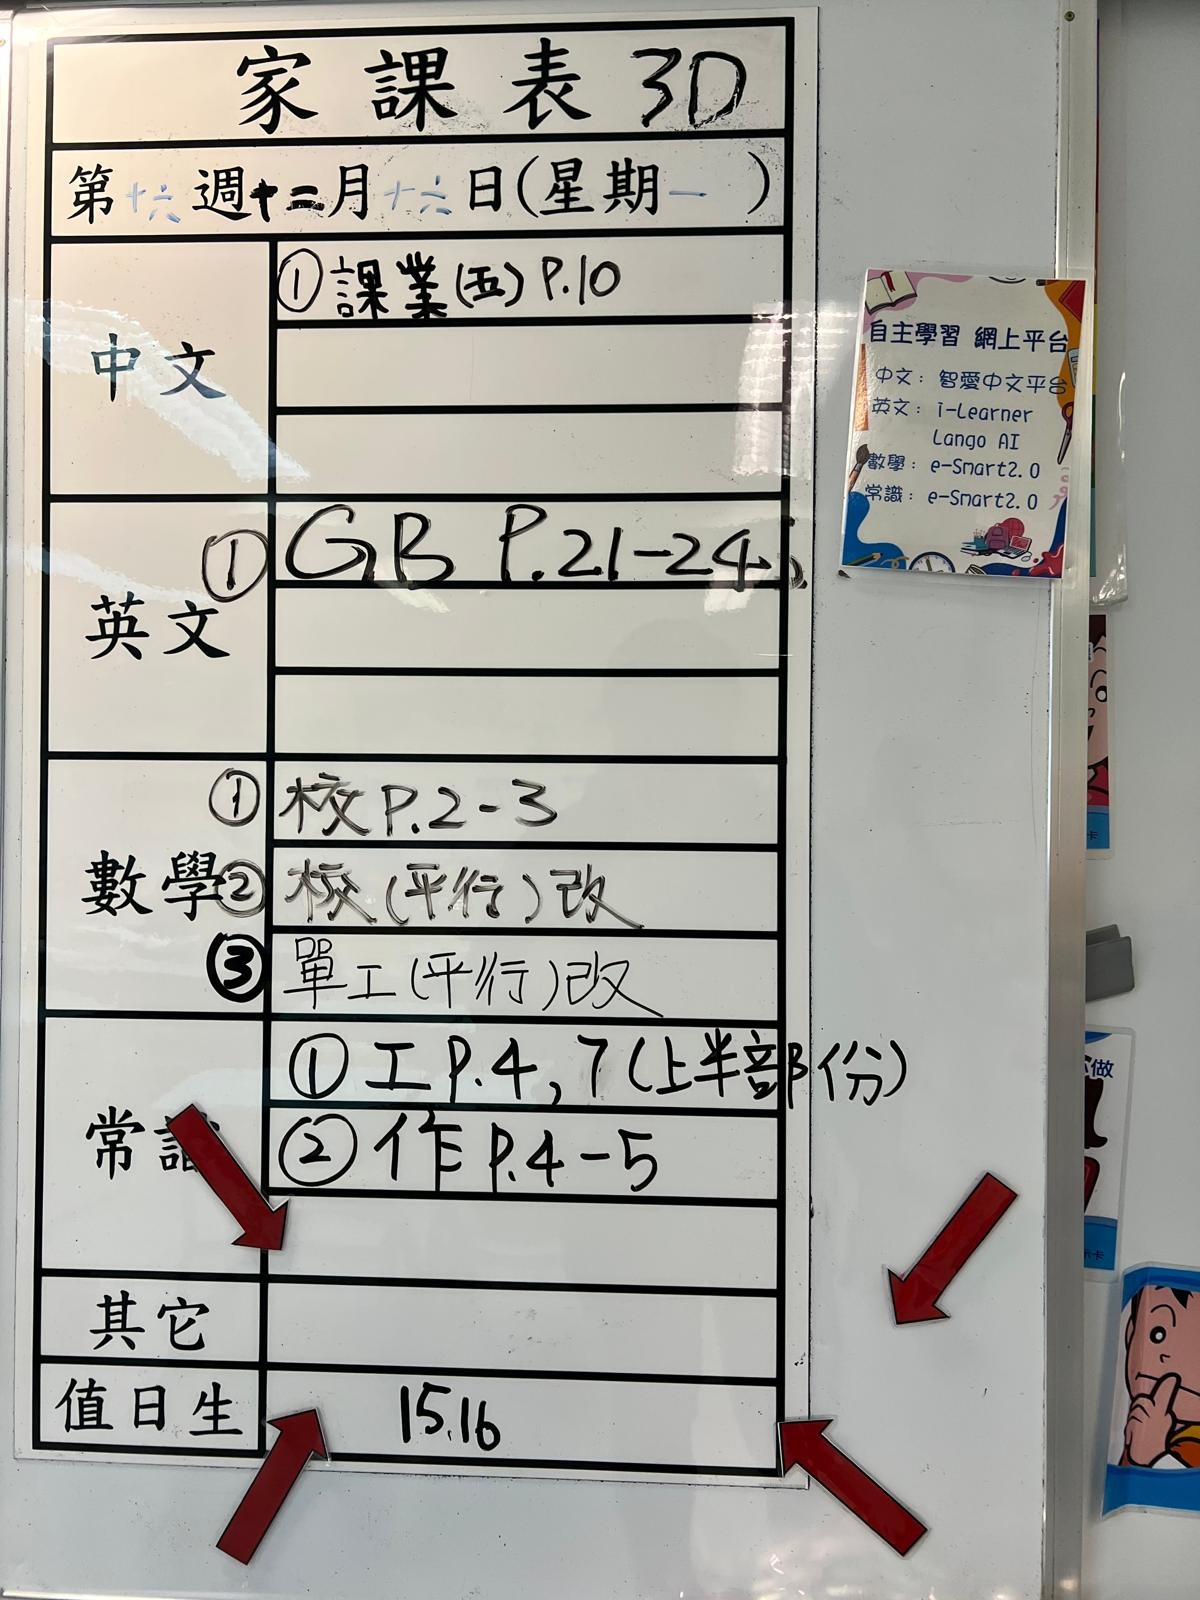 家課表 3D
第十六週十二月十六日(星期一)
中文
① 課業(五) P.10
英文
① GB P.21-24
數學
① 校 P.2-3
② 校(平行)改
③ 單工(平行)改
常識
① 工 P.4, 7 (上半部份)
② 作 P.4-5
其它
值日生
15.16
自主學習 網上平台
中文: 智愛中文平台
英文: i-Learner
Lango AI
數學: e-Smart2.0
常識: e-Smart2.0
做
示卡
卡